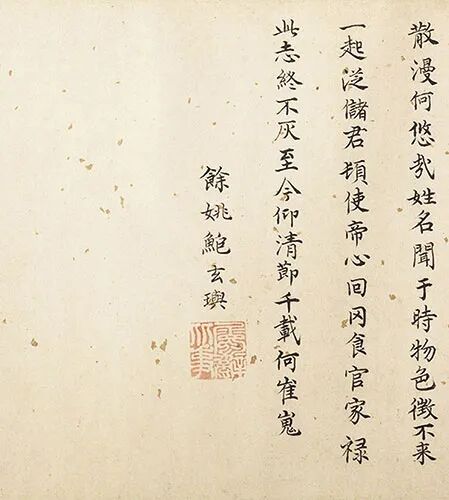 散漫何悠哉姓名聞于時物色徵不来
一起泛儲君頓使帝心回冈食官家禄
此志終不灰至今仰清節千載何崔嵬
餘姚鮑玄璵